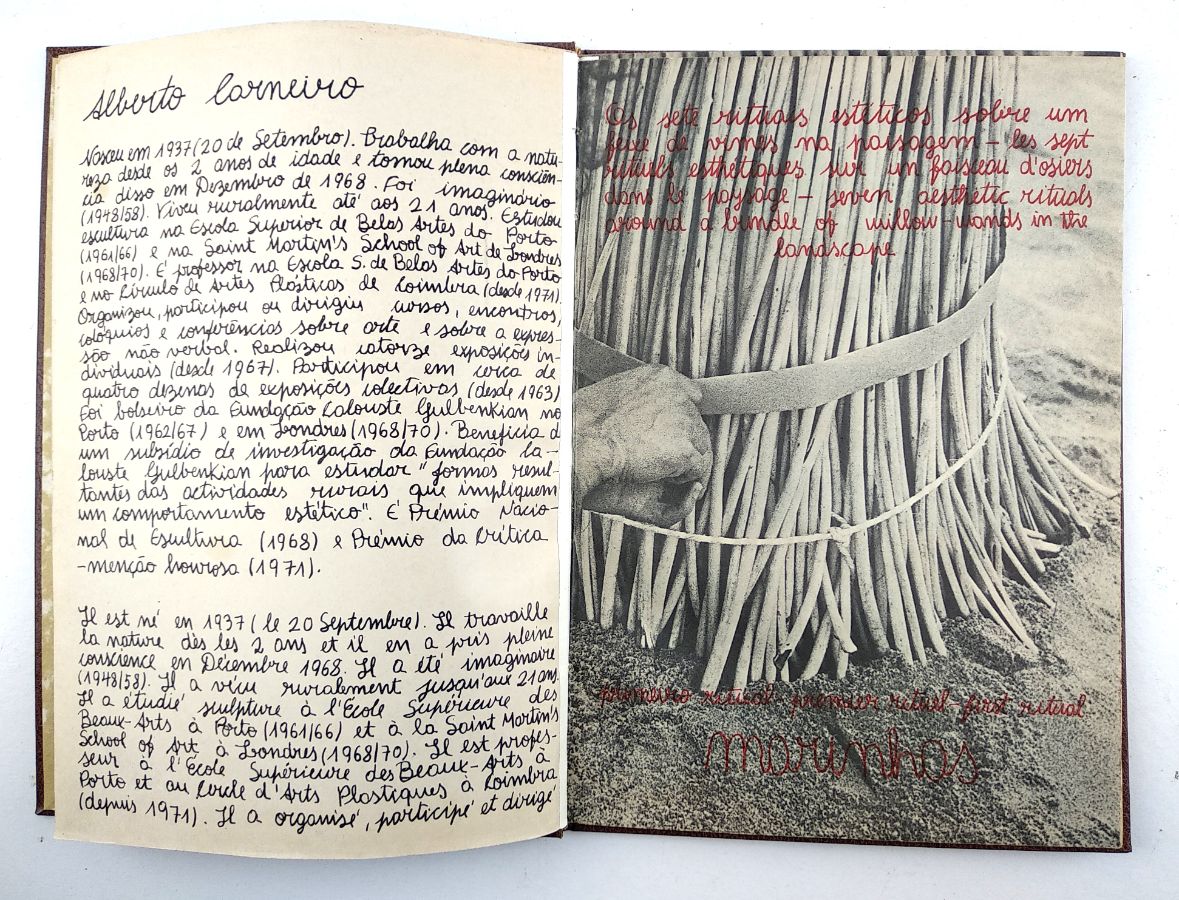 Alberto Carneiro
Nasceu em 1937 (20 de Setembro). Trabalha com a natu-
reza desde os 2 anos de idade e tomou plena consciên-
cia disso em Dezembro de 1968. Foi imaginário
(1948/58). Viveu ruralmente até aos 21 anos. Estudou
escultura na Escola Superior de Belas Artes do Porto
(1961/66) e na Saint Martin's School of Art de Londres
(1968/70). É professor na Escola S. de Belas Artes do Porto
e no Círculo de Artes Plásticas de Coimbra (desde 1971).
Organizou, participou ou dirigiu cursos, encontros,
colóquios e conferências sobre arte e sobre a expres-
são não verbal. Realizou catorze exposições in-
dividuais (desde 1967). Participou em cerca de
quatro dezenas de exposições colectivas (desde 1963)
Foi bolseiro da Fundação Calouste Gulbenkian no
Porto (1962/67) e em Londres (1968/70). Beneficia d
um subsídio de investigação da Fundação Ca-
louste Gulbenkian para estudar "formas resul-
tantes das actividades rurais que impliquem
um comportamento estético". É Prémio Nacio-
nal de Escultura (1968) e Prémio da Crítica
-menção honrosa (1971).
Il est né en 1937 (le 20 Septembre). Il travaille
la nature dès les 2 ans et il en a pris pleine
conscience en Décembre 1968. Il a été imaginaire
(1948/58). Il a vécu ruralement jusqu'aux 21 ans.
Il a étudié sculpture à l'École Supérieure des
Beaux-Arts à Porto (1961/66) et à la Saint Martin's
School of Art à Londres (1968/70). Il est profes-
seur à l'École Supérieure des Beaux-Arts à
Porto et au Cercle d'Arts Plastiques à Coimbra
(depuis 1971). Il a organisé, participé et dirigé
Os sete rituais estéticos sobre um
feixe de vimes na paisagem - les sept
rituels esthétiques sur un faisceau d'osiers
dans le paysage - seven aesthetic rituals
around a bundle of willow-wands in the
landscape
primeiro ritual - premier rituel - first ritual
marinhas